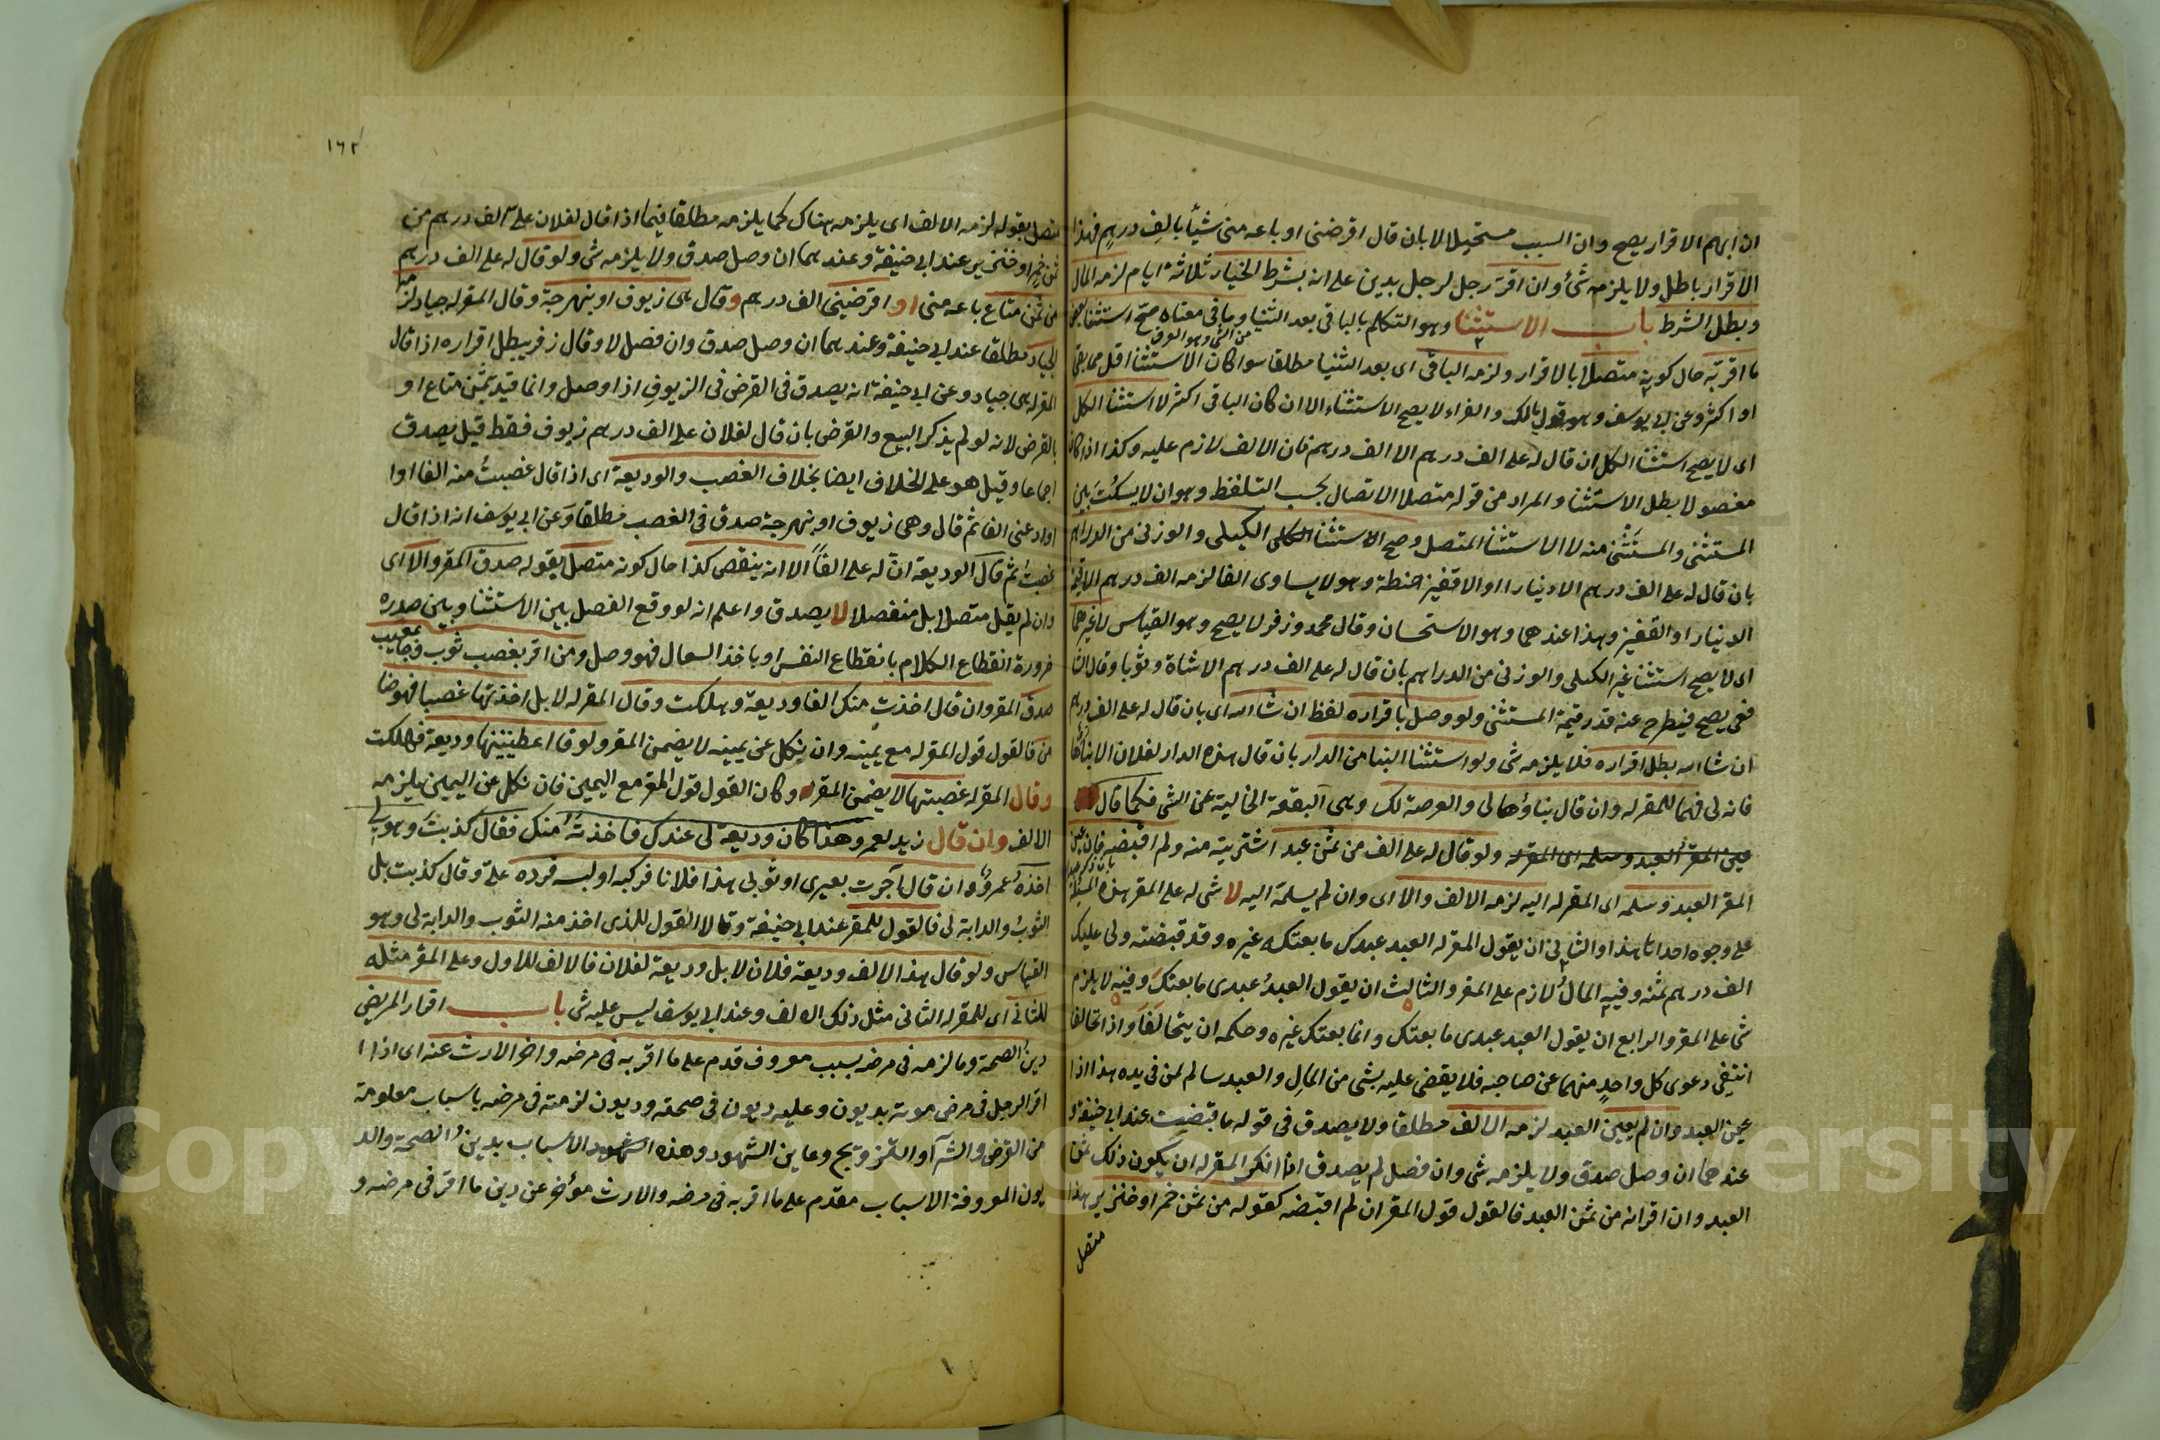 ان ابهم الاقرار يصح وان السبب مستحيلا لا بان قال اقرضنى او باعه منى شيأ بالف درهم فهذا
الاقرار باطل ولا يلزمه شئ وان اقر رجل لرجل بدين على انه بشرط الخيار ثلاثة ايام لزمه المال
وبطل الشرط باب الاستثنا وهو التكلم بالباقى بعد الثنيا وما فى معناه صح استثنا بعض
ما اقر به حال كونه متصلا بالاقرار ولزمه الباقى اى بعد الثنيا مطلقا سوا كان الاستثنا اقل مما بقى
او اكثر وعن ابى يوسف وهو قول مالك والفراء لا يصح الاستثناء الا ان كان الباقى اكثر لا استثنا الكل
اى لا يصح استثنا الكل ان قال له على الف درهم الا الف درهم فان الالف لازم عليه وكذا اذا كان
مفصولا بطل الاستثنا والمراد من قوله متصلا الاتصال بحسب التلفظ وهو ان لا يسكت بين
المستثنى والمستثنى منه لا الاستثنا المتصل وصح الاستثنا الكيلى والوزنى من الدراهم
بان قال له على الف درهم الا دينارا او الا قفيز حنطة وهو لا يساوى الفا لزمه الف درهم الا قيمة
الدينار او القفيز وهذا عندهما وهو الاستحسان وقال محمد وزفر لا يصح وهو القياس لا غيرهما
اى لا يصح استثنا غير الكيلى والوزنى من الدراهم بان قال له على الف درهم الا شاة وثوبا وقال الشا
فعى يصح فيطرح عنه قدر قيمة المستثنى ولو وصل باقراره لفظ ان شا الله اى بان قال له على الف درهم
ان شا الله بطل اقراره فلا يلزمه شى ولو استثنا البنا من الدار بان قال هذه الدار لفلان الا بناؤها
فانه لى فهما للمقر له وان قال بناؤها لى والعرصة لك وهى البقعة الخالية عن الشى فكما قال
ولو قال له على الف من ثمن عبد اشتريته منه ولم اقبضه فان عين
المقر العبد وسلمه اى المقر له اليه لزمه الالف والا اى وان لم يسلمه اليه لا شى له على المقر هذه المسئلة
على وجوه احداها هذا والثانى ان يقول المقر له العبد عبدك ما بعتكه غيره وقد قبضته ولى عليك
الف درهم ثمنه وفيه المال لازم على المقر والثالث ان يقول العبد عبدى ما بعتك وفيه لا يلزم
شى على المقر والرابع ان يقول العبد عبدى ما بعتك وانما بعتك غيره وحكمه ان يتحالفا واذا تحالفا
انتفى دعوى كل واحد منهما عن صاحبه فلا يقضى عليه بشى من المال والعبد سالم لمن فى يده هذا اذا
عين العبد وان لم يعين العبد لزمه الالف مطلقا ولا يصدق فى قوله ما قبضت عند ابى حنيفة
عندهما ان وصل صدق ولا يلزمه شى وان فصل لم يصدق اذا انكر المقر له ان يكون ذلك ثمن
العبد وان اقر انه من ثمن العبد فالقول قول المقر ان لم اقبضه كقوله من ثمن خمر او خنزير هذا
متصل
١٦٢
متصل بقوله لزمه الالف اى يلزمه هناك كما يلزمه مطلقا فيما اذا قال لفلان على الف درهم من
ثمن خمر او خنزير عند ابى حنيفة وعندهما ان وصل صدق ولا يلزمه شى ولو قال له على الف درهم
من ثمن متاع باعه منى او اقرضينى الف درهم وقال هى زيوف او بنهرجة وقال المقر له جياد لزمه
الجياد مطلقا عند ابى حنيفة وعندهما ان وصل صدق وان فصل لا وقال زفر يبطل اقراره اذا قال
المقر له هى جياد وعن ابى حنيفة انه يصدق فى القرض فى الزيوف اذا وصل وانما قيد بثمن متاع او
بالقرض لانه لو لم يذكر البيع والقرض بان قال لفلان على الف درهم زيوف فقط قيل يصدق
اجماعا وقيل هو على الخلاف ايضا بخلاف الغصب والوديعة اى اذا قال غصبت منه الفا او
اودعنى الفا ثم قال وهى زيوف او بنهرجة صدق فى الغصب مطلقا وعن ابى يوسف انه اذا قال
غصبت ثم قال الوديعة ان له على الفا الا انه ينقص كذا حال كونه متصل بقوله صدق المقر والا اى
وان لم يقل متصلا بل منفصلا لا يصدق واعلم انه لو وقع الفصل بين الاستثنا وبين صدره
ضرورة انقطاع الكلام بانقطاع النفس او باخذ السعال فهو وصل ومن اقر بغصب ثوب وجا بمعيب
صدق المقر وان قال اخذت منك الفا وديعة وهلكت وقال المقر له لا بل اخذتها غصبا فهو ضا
من فالقول قول المقر له مع يمينه وان ينكل عن يمينه لا يضمن المقر ولو قا اعطيتنيها وديعة فهلكت
وقال المقر له غصبتها لا يضمن المقر له وكان القول قول المقر مع اليمين فان نكل عن اليمين يلزمه
الالف وان قال زيد لعمرو هذا كان وديعة لى عندك فاخذته منك فقال كذبت وهو لى
اخذه عمرو وان قال آجرت بعيرى او ثوبى هذا فلانا فركبه او لبسه فرده على وقال كذبت بل
الثوب والدابة لى فالقول للمقر عند ابى حنيفة وقالا القول للذى اخذ منه الثوب والدابة لى وهو
القياس ولو قال هذا الالف وديعة فلان لا بل وديعة لفلان فالالف للاول وعلى المقر مثله
للثانى اى للمقر له الثانى مثل ذلك الالف وعند ابى يوسف ليس عليه شى باب اقرار المريض
دين الصحة وما لزمه فى مرضه بسبب معروف قدم على ما اقر به فى مرضه واخر الارث عنه اى اذا
اقر الرجل فى مرض موته بديون وعليه ديون فى صحته وديون لزمته فى مرضه باسباب معلومة
من القرض والشرآ وعاين الشهود وهذه الاسباب بدين الصحة والد
يون المعروفة الاسباب مقدم على ما اقر به فى مرضه والارث مؤخر عن دين ما اقر فى مرضه و
Copy King Saud University